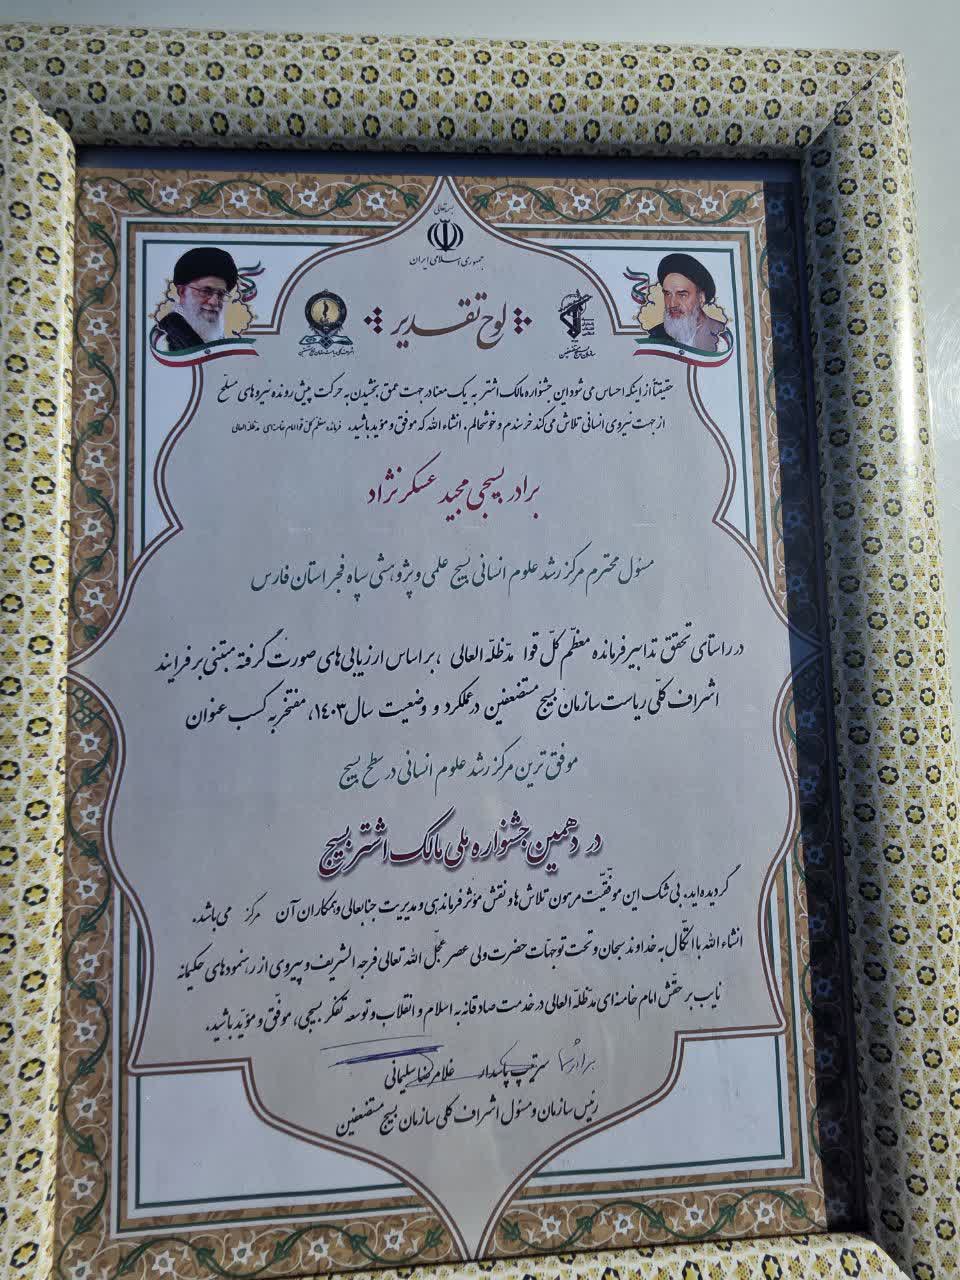 بسمه‌تعالی
جمهوری اسلامی ایران
لوح تقدیر
سازمان بسیج مستضعفین
حقیقتاً از اینکه احساس می‌شود این جشنواره مالک اشتر به یک معنا در جهت عمق بخشیدن به حرکت پیش رونده نیروهای مسلح
از جهت نیروی انسانی تلاش می‌کند خرسندم و خوشحالم، انشاء الله که موفق و مؤید باشید. فرمانده معظم کل قوا امام خامنه‌ای مدظله العالی
برادر بسیجی مجید عسکرنژاد
مسئول محترم مرکز رشد علوم انسانی بسیج علمی و پژوهشی سپاه فجر استان فارس
در راستای تحقق تدابیر فرمانده معظم کل قوا مدّظلّه العالی، بر اساس ارزیابی‌های صورت گرفته مبتنی بر فرایند
اشراف کلّی ریاست سازمان بسیج مستضعفین در عملکرد و وضعیت سال ۱۴۰۳، مفتخر به کسب عنوان
موفق ترین مرکز رشد علوم انسانی در سطح بسیج
در دهمین جشنواره ملی مالک اشتر بسیج
گردیده‌اید. بی شک این موفقیّت مرهون تلاش‌ها و نقش مؤثر فرماندهی و مدیریت جنابعالی و همکاران آن مرکز می‌باشد.
انشاء الله با اتّکال به خداوند سبحان و تحت توجهات حضرت ولی عصر عجّل الله تعالی فرجه الشریف و پیروی از رهنمودهای حکیمانه
نایب بر حقّش امام خامنه‌ای مدّظلّه العالی در خدمت صادقانه به اسلام و انقلاب و توسعه تفکر بسیجی، موفّق و مؤیّد باشید.
سرتیپ پاسدار غلامرضا سلیمانی
رئیس سازمان و مسئول اشراف کلی سازمان بسیج مستضعفین